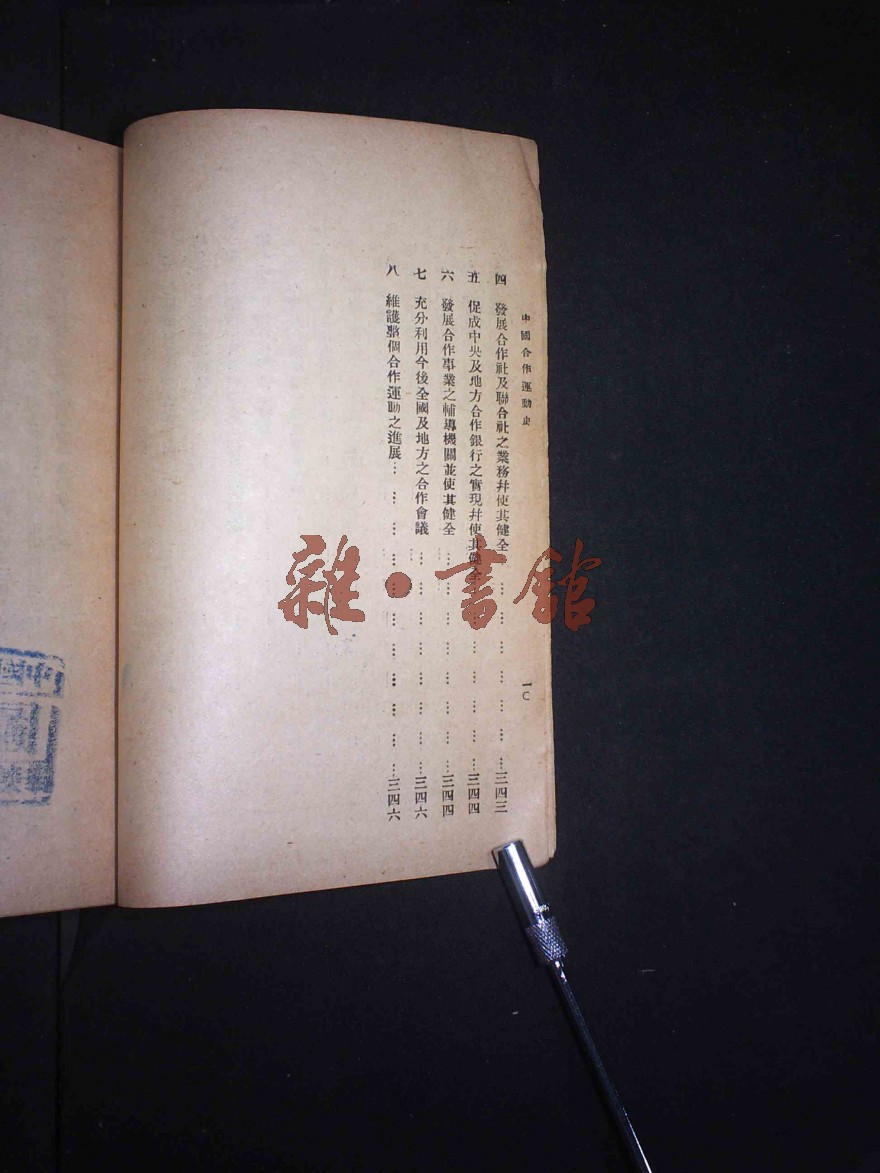 中國合作運動史
一〇
四 發展合作社及聯合社之業務幷使其健全……三四三
五 促成中央及地方合作銀行之實現幷使其健全……三四四
六 發展合作事業之輔導機關並使其健全……三四四
七 充分利用今後全國及地方之合作會議……三四六
八 維護整個合作運動之進展……三四六
雜·書館
中國